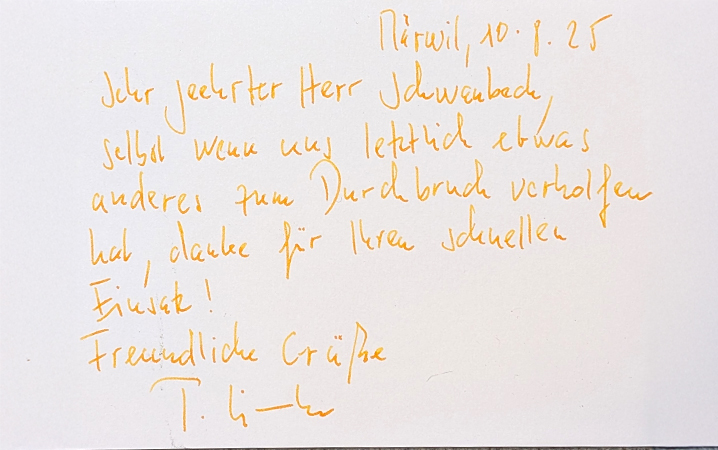 Märwil, 10.8.25
Sehr geehrter Herr Schwenbeck,
selbst wenn uns letztlich etwas
anderes zum Durchbruch verholfen
hat, danke für Ihren schnellen
Einsatz!
Freundliche Grüße
T.